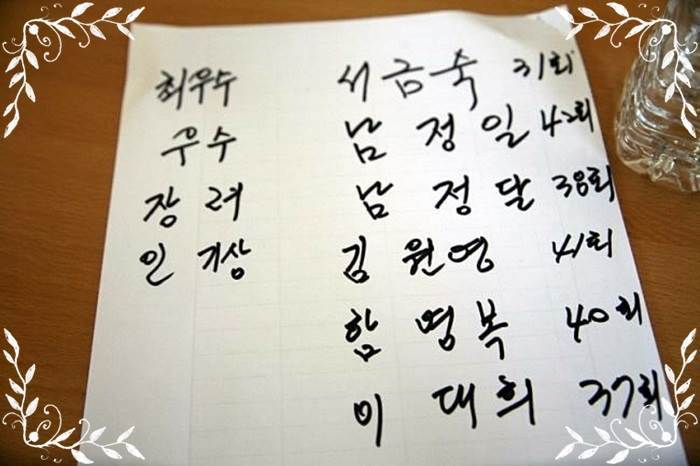 최우수 서금숙 31회
우수 남정일 42회
장려 남정달 38회
인기상 김원영 41회
함명복 40회
이대희 37회